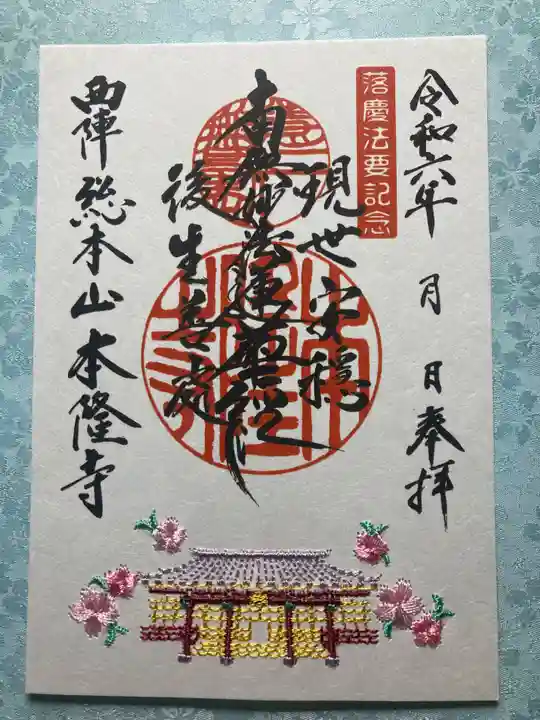 令和六年 月 日奉拝
落慶法要記念
現世安穏
南無妙法蓮華経
後生善処
西陣総本山本隆寺